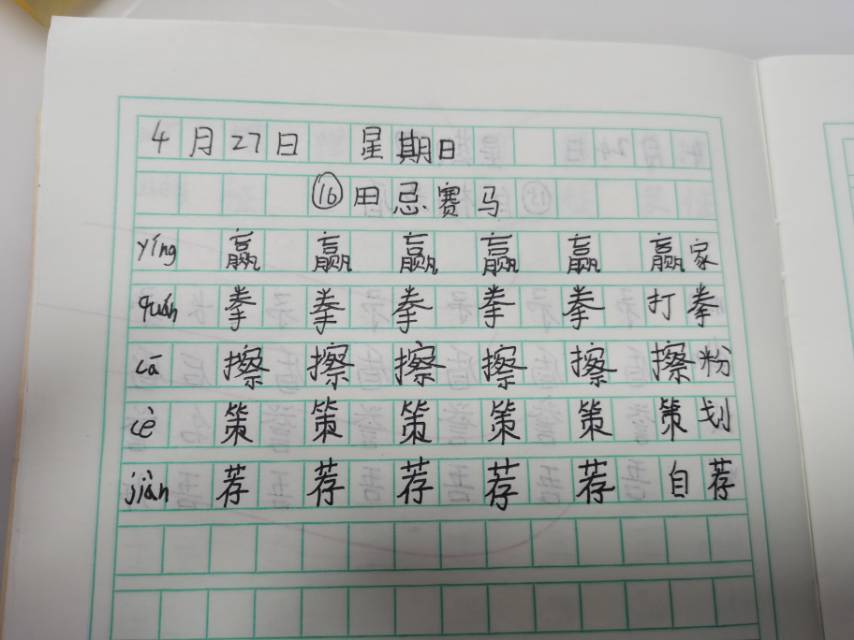 4月27日 星期日
⑯田忌赛马
yíng 赢 赢 赢 赢 赢 赢家
quán 拳 拳 拳 拳 拳 打拳
cā 擦 擦 擦 擦 擦 擦粉
cè 策 策 策 策 策 策划
jiàn 荐 荐 荐 荐 荐 自荐